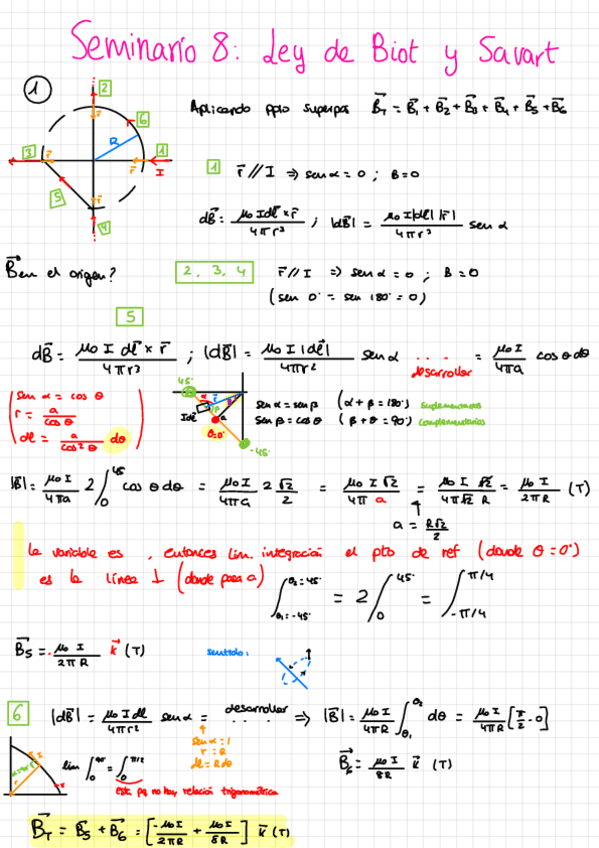 Seminario 8: Ley de Biot y Savart
1
2
6
R
3
1
r
r
I
5
4
Aplicando ppio superpos B⃗T = B⃗1 + B⃗2 + B⃗3 + B⃗4 + B⃗5 + B⃗6
1 r⃗ // I ⇒ sen α = 0 ; B = 0
dB⃗ = μ0 I dl⃗ × r⃗ / 4π r³ ; |dB⃗| = μ0 I |dl| |r⃗| / 4π r³ sen α
B⃗ en el origen?
2, 3, 4 r⃗ // I ⇒ sen α = 0 ; B = 0
(sen 0° = sen 180° = 0)
5
dB⃗ = μ0 I dl⃗ × r⃗ / 4π r³ ; |dB⃗| = μ0 I |dl⃗| / 4π r² sen α .... = μ0 I / 4π a cos θ dθ
desarrollar
sen α = cos θ
r = a / cos θ
dl = a / cos² θ dθ
45°
Idl
a
θ=0°
-45°
sen α = sen β (α + β = 180°) suplementarios
sen β = cos θ (β + θ = 90°) complementarios
|B⃗| = μ0 I / 4π a 2 ∫0^45 cos θ dθ = μ0 I / 4π a 2 √2 / 2 = μ0 I √2 / 4π a = μ0 I √2 / 4π √2 R = μ0 I / 2π R (T)
a = R√2 / 2
la variable es , entonces lim. integración el pto de ref (donde θ = 0°)
es la línea ⊥ (donde pasa a)
∫θ1=-45°^θ2=45° = 2 ∫0^45° = ∫-π/4^π/4
B⃗5 = - μ0 I / 2π R k⃗ (T)
sentido:
6 |dB⃗| = μ0 I dl / 4π r² sen α = desarrollar .... ⇒ |B⃗| = μ0 I / 4π R ∫θ1^θ2 dθ = μ0 I / 4π R [π/2 - 0]
sen α = 1
r = R
dl = R dθ
lim ∫0^90° = ∫0^π/2
Esta pq no hay relación trigonométrica
B⃗6 = μ0 I / 8R k⃗ (T)
B⃗T = B⃗5 + B⃗6 = [-μ0 I / 2π R + μ0 I / 8R] k⃗ (T)